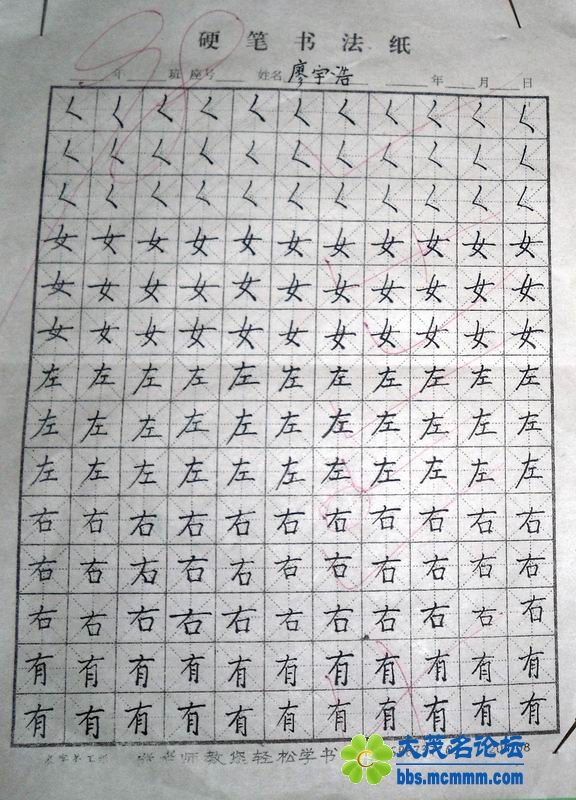 硬笔书法纸
年 班 座号 姓名 廖宇浩 年 月 日
ㄑ ㄑ ㄑ ㄑ ㄑ ㄑ ㄑ ㄑ ㄑ ㄑ ㄑ
ㄑ ㄑ ㄑ ㄑ ㄑ ㄑ ㄑ ㄑ ㄑ ㄑ ㄑ
ㄑ ㄑ ㄑ ㄑ ㄑ ㄑ ㄑ ㄑ ㄑ ㄑ ㄑ
女 女 女 女 女 女 女 女 女 女 女
女 女 女 女 女 女 女 女 女 女 女
女 女 女 女 女 女 女 女 女 女 女
左 左 左 左 左 左 左 左 左 左 左
左 左 左 左 左 左 左 左 左 左 左
左 左 左 左 左 左 左 左 左 左 左
右 右 右 右 右 右 右 右 右 右 右
右 右 右 右 右 右 右 右 右 右 右
右 右 右 右 右 右 右 右 右 右 右
有 有 有 有 有 有 有 有 有 有 有
有 有 有 有 有 有 有 有 有 有 有
师教您轻松学书
大茂名论坛
bbs.mcmmm.com